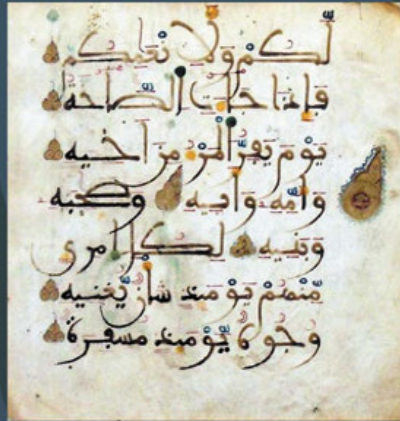 لَّكُمْ وَلِأَنْعَٰمِكُمْ
فَإِذَا جَاءَتِ الصَّاخَّةُ
يَوْمَ يَفِرُّ الْمَرْءُ مِنْ أَخِيهِ
وَأُمِّهِ وَأَبِيهِ وَصَٰحِبَتِهِ
وَبَنِيهِ لِكُلِّ امْرِئٍ
مِّنْهُمْ يَوْمَئِذٍ شَأْنٌ يُغْنِيهِ
وُجُوهٌ يَوْمَئِذٍ مُّسْفِرَةٌ